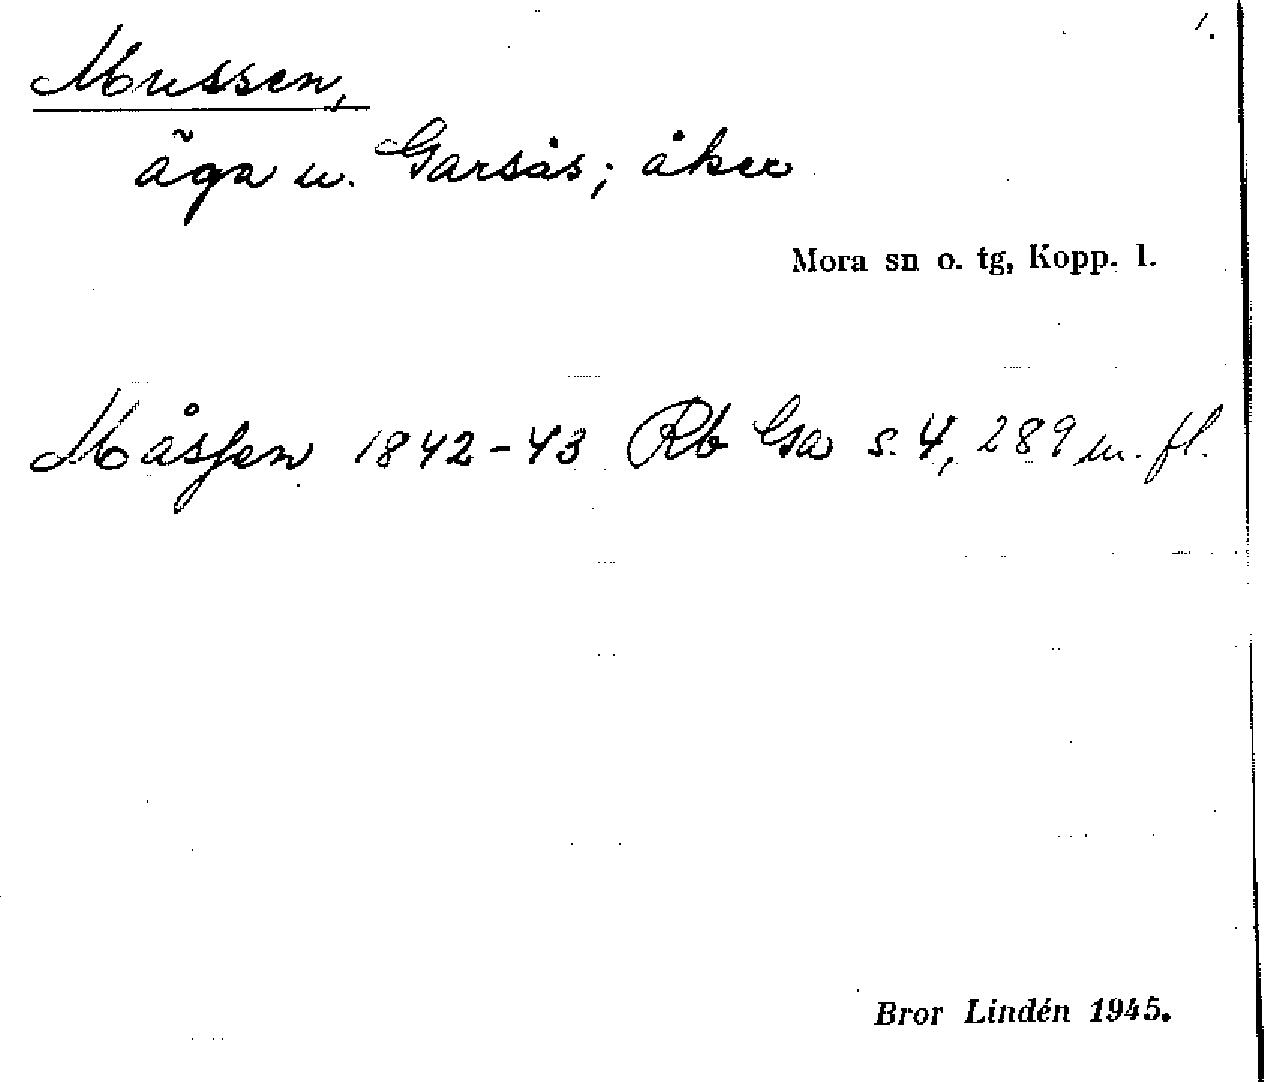 1.
Mussen,
äga u. Garsås; åker
Mora sn o. tg, Kopp. l.
Måssen 1842-43 Rb Ga s. 4, 289 m. fl.
Bror Lindén 1945.